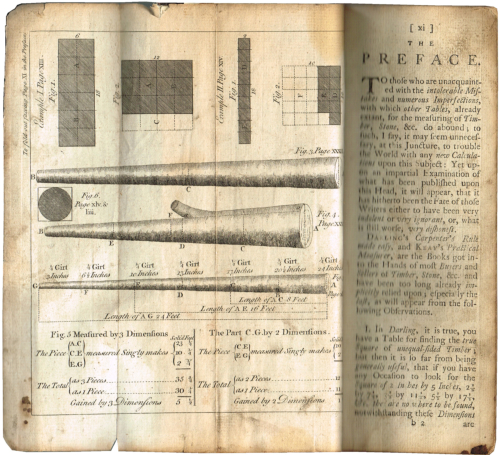 To fold out fronting Page XI. in the Preface
Example I. Page XIV
Fig. 1.
6
A
B
18
Fig. 2.
12
A
D
B
C
Example II. Page XIV
Fig. 1.
A
B
18
Fig. 2.
10
Fig. 3. Page
B
C
A
Fig. 6.
Page xlv. &
lxi.
F
Fig. 4.
B
E
D
C
A
¼ Girt
3 Inches
¼ Girt
6½ Inches
¼ Girt
10 Inches
¼ Girt
¼ Girt
Inches
¼ Girt
20½ Inches
¼ Girt
24 Inches
G
F
E
D
C
B
A
Length of A.C. 8 Feet
Length of A.E. 16 Feet
Length of A.G. 24 Feet
Fig. 5 Measured by 3 Dimensions
The Piece
(A.C
(C.E
(E.G
measured Singly makes
The Total
(as 3 Pieces
(as 1 Piece
Gained by 3 Dimensions
The Part C.G. by 2 Dimensions
The Piece
(C.E
(E.G
measured Singly makes
The Total
(as 2 Pieces
(as 1 Piece
Gained by 2 Dimensions
[ xi ]
THE
PREFACE.
TO those who are unacquain-
ted with the intolerable Mis-
takes and numerous Imperfections,
with which other Tables, already
extant, for the measuring of Tim-
ber, Stone, &c. do abound; to
such, I say, it may seem unneces-
sary, at this Juncture, to trouble
the World with any new Calcula-
tions upon this Subject: Yet up-
on an impartial Examination of
what has been published upon
this Head, it will appear, that it
has hitherto been the Fate of those
Writers either to have been very
indolent or very ignorant, or, what
is still worse, very dishonest.
DARLING's Carpenter's Rule
made easy, and KEAY's Practical
Measurer, are the Books got in-
to the Hands of most Buyers and
Sellers of Timber, Stone, &c. and
have been too long already im-
plicitly relied upon; especially the
first, as will appear from the fol-
lowing Observations.
1. In Darling, it is true, you
have a Table for finding the true
Square of unequal-sided Timber;
but then it is so far from being
generally useful, that if you have
any Occasion to look for the
Square of 2 Inches by 5 Inches,
&c. they are no where to be found,
notwithstanding these Dimensions
b 2
are